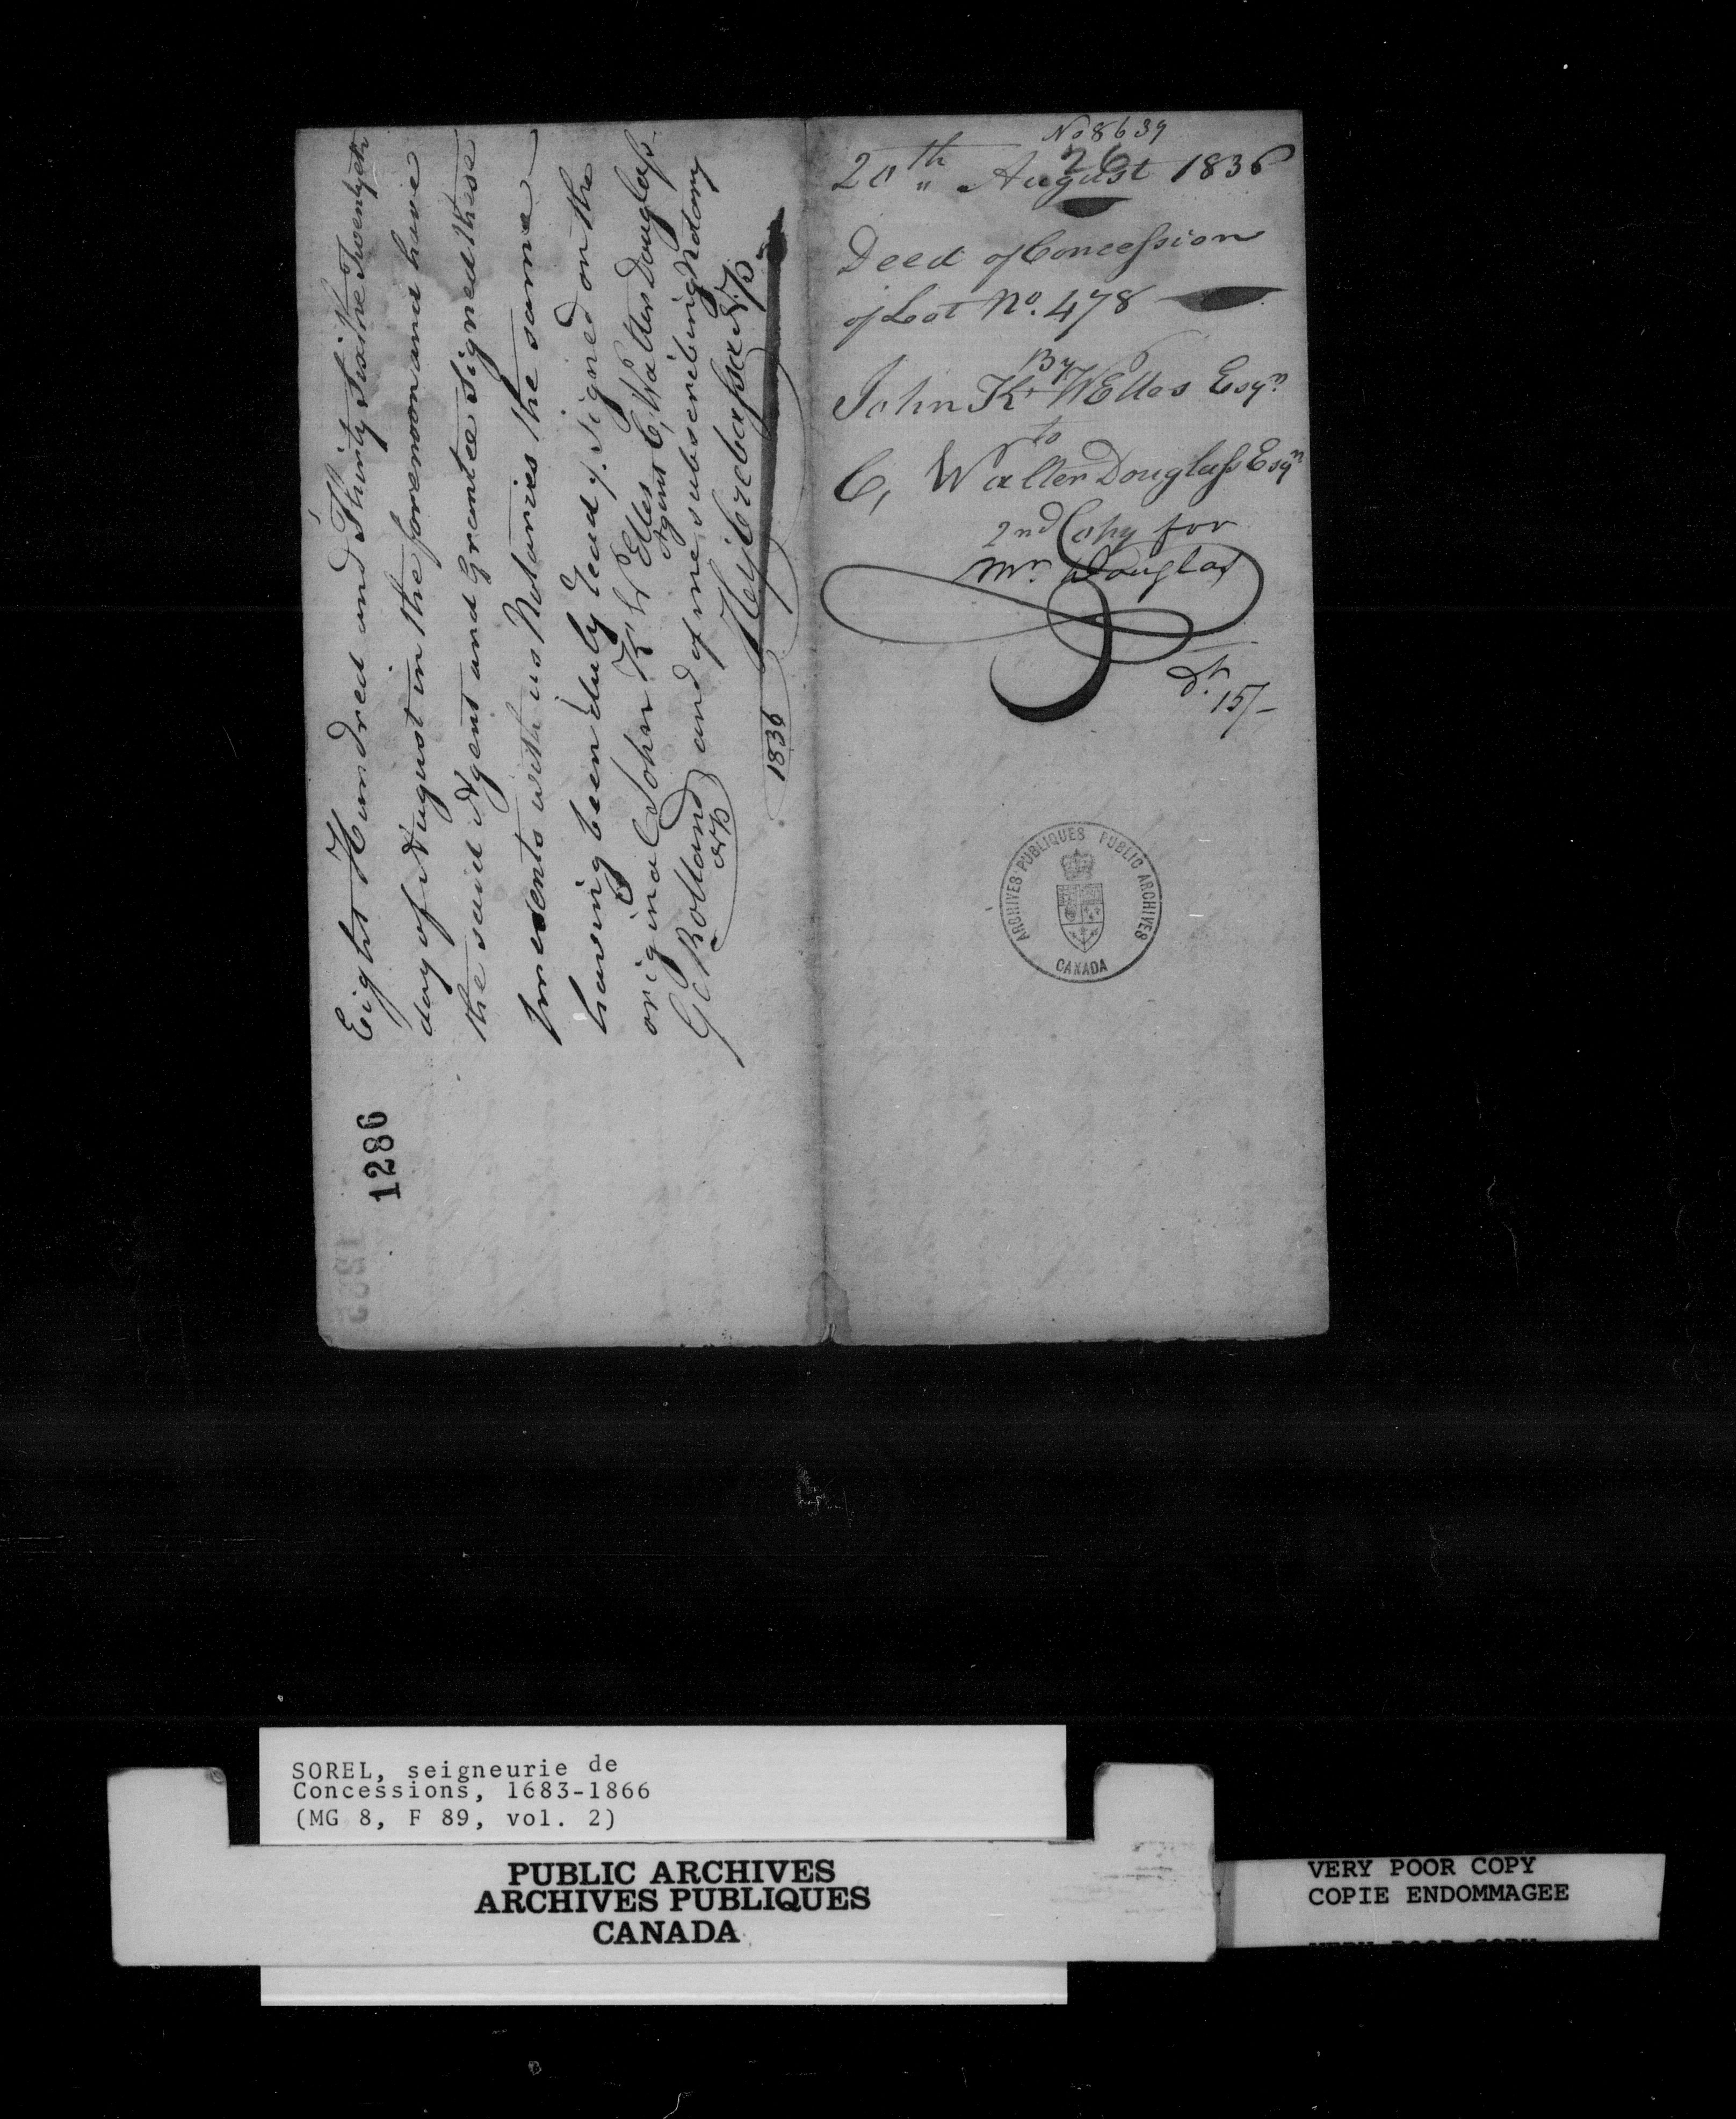 Eight Hundred and Thirty Six the Twentyeth
day of August in the forenoon and have
the said Agent and Grantee Signed these
presents with us Notaries the same
having been duly read, Signed on the
original John Kr W Elles Agent C, Walter Douglass
G. Rolland NP and of me subscribing Notary
NP
1836
1286
No 8639
26
20th August 1836
Deed of Concession
of Lot No. 478
By
John Kr WElles Esqr
to
C, Walter Douglass Esqr
2nd Copy for
Mr. Douglas
Dr. 15/-
ARCHIVES PUBLIQUES PUBLIC ARCHIVES
CANADA
SOREL, seigneurie de
Concessions, 1683-1866
(MG 8, F 89, vol. 2)
PUBLIC ARCHIVES
ARCHIVES PUBLIQUES
CANADA
VERY POOR COPY
COPIE ENDOMMAGEE
VERY POOR COPY